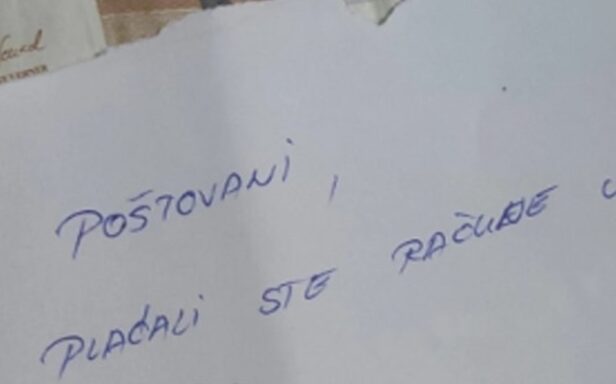 POŠTOVANI,
PLAĆALI STE RAČUNE U